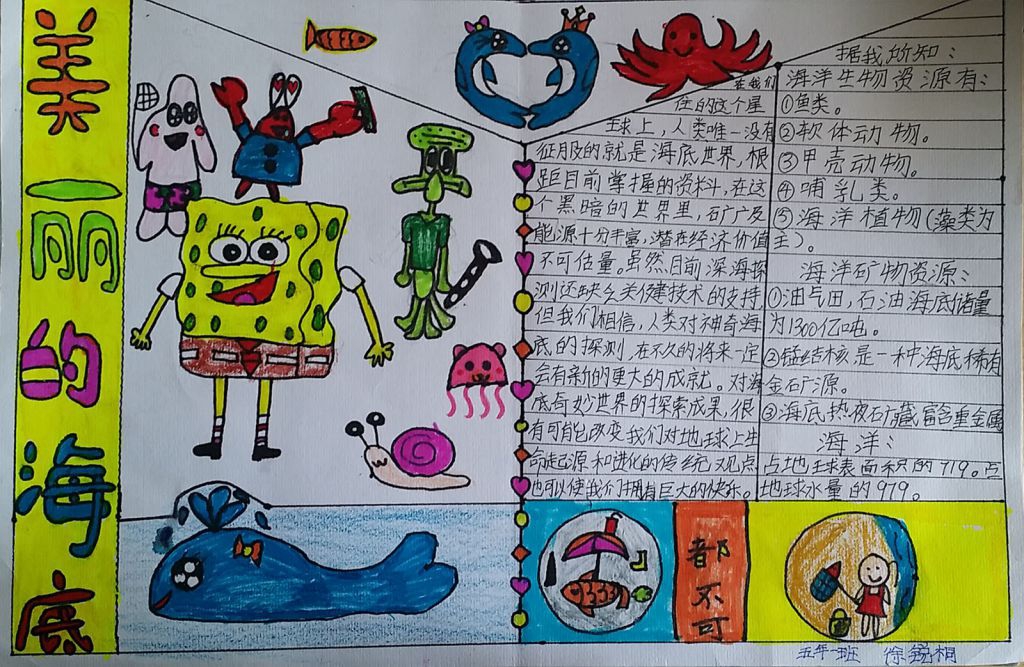 美丽的海底
在我们
住的这个星
球上，人类唯一没有
征服的就是海底世界，根
距目前掌握的资料，在这
个黑暗的世界里，矿产及
能源十分丰富，潜在经济价值
不可估量。虽然目前深海探
测还缺乏关键技术的支持
但我们相信，人类对神奇海
底的探测，在不久的将来一定
会有新的更大的成就。对海
底奇妙世界的探索成果，很
有可能改变我们对地球上生
命起源和进化的传统观点
也可以使我们拥有巨大的快乐。
据我所知：
海洋生物资源有：
①鱼类。
②软体动物。
③甲壳动物。
④哺乳类。
⑤海洋植物(藻类为
主)。
海洋矿物资源：
①油气田，石油海底储量
为1300亿吨。
②锰结核是一种海底稀有
金石广源。
③海底热液矿藏富含重金属
海洋：
占地球表面积的719。占
地球水量的979。
都不可
五年一班 徐锐桐